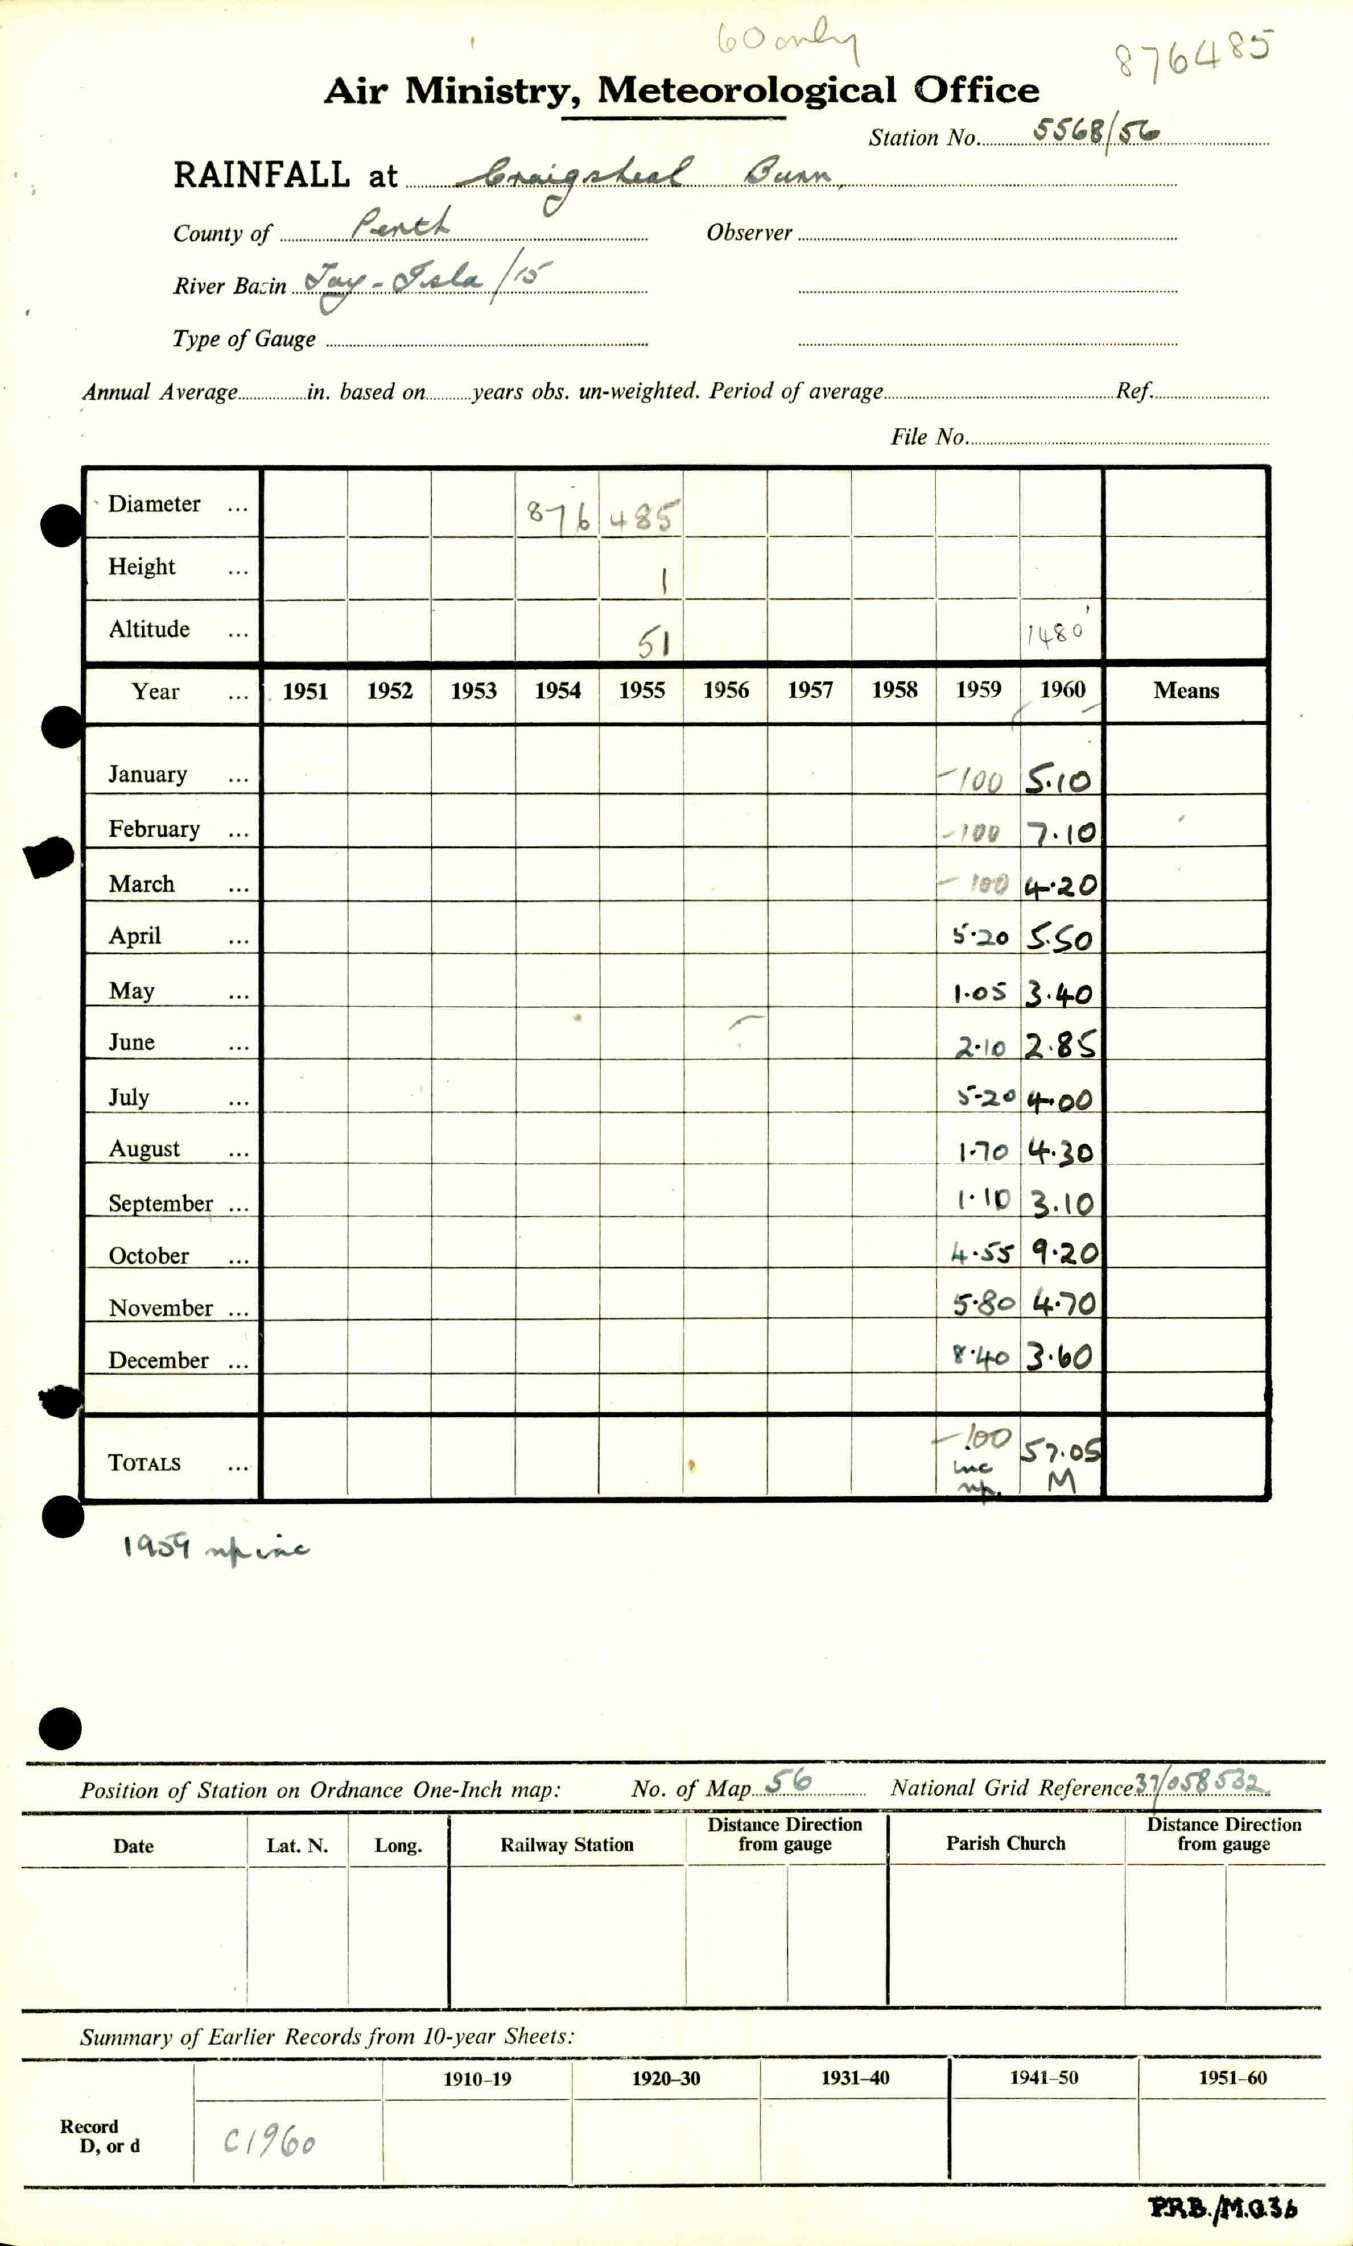 60 only
876485
Air Ministry, Meteorological Office
Station No. 5568/56
RAINFALL at Craigsheal Burn,
County of Perth Observer
River Basin Tay-Isla/15
Type of Gauge
Annual Average in. based on years obs. un-weighted. Period of average Ref.
File No.
Diameter ... 876 485
Height ... 1
Altitude ... 51 1480'
Year ... 1951 1952 1953 1954 1955 1956 1957 1958 1959 1960 Means
January ... -100 5.10
February ... -100 7.10
March ... -100 4.20
April ... 5.20 5.50
May ... 1.05 3.40
June ... 2.10 2.85
July ... 5.20 4.00
August ... 1.70 4.30
September ... 1.10 3.10
October ... 4.55 9.20
November ... 5.80 4.70
December ... 8.40 3.60
TOTALS ... -100 57.05
inc M
np.
1959 np inc
Position of Station on Ordnance One-Inch map: No. of Map 56 National Grid Reference 37/058532
Date Lat. N. Long. Railway Station Distance Direction from gauge Parish Church Distance Direction from gauge
Summary of Earlier Records from 10-year Sheets:
1910-19 1920-30 1931-40 1941-50 1951-60
Record
D, or d C1960
P.R.B./M.O.36